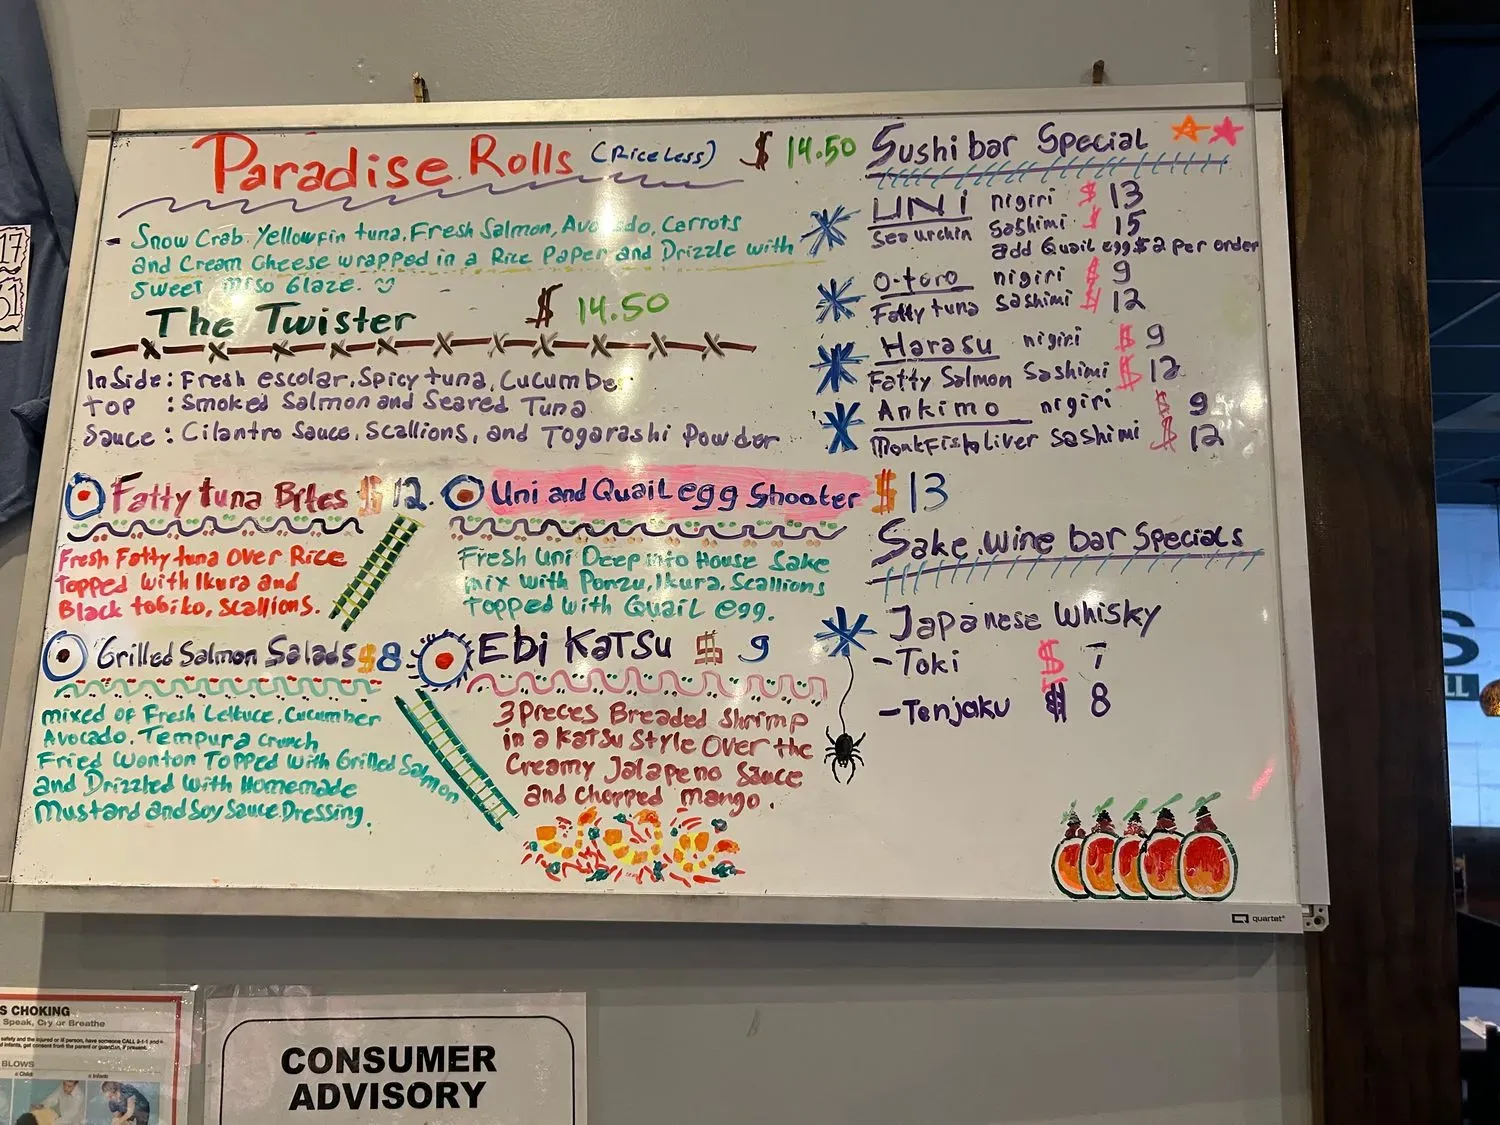 Paradise Rolls (Riceless) $ 14.50
- Snow Crab, Yellowfin tuna, Fresh Salmon, Avocado, Carrots
and Cream Cheese wrapped in a Rice Paper and Drizzle with
Sweet Miso Glaze.
The Twister $ 14.50
Inside: Fresh escolar, Spicy tuna, Cucumber
Top : Smoked Salmon and Seared Tuna
Sauce: Cilantro Sauce, Scallions, and Togarashi Powder
Fatty tuna Bites $ 12.
Fresh Fatty tuna Over Rice
Topped with Ikura and
Black tobiko, Scallions.
Uni and Quail egg Shooter $ 13
Fresh Uni Deep into House Sake
mix with Ponzu, Ikura, Scallions
Topped with Quail egg.
Grilled Salmon Salads $8
mixed of Fresh Lettuce, Cucumber
Avocado, Tempura Crunch
Fried Wonton Topped with Grilled Salmon
and Drizzled with Homemade
Mustard and Soy Sauce Dressing.
Ebi Katsu $ 9
3 Pieces Breaded Shrimp
in a Katsu Style Over the
Creamy Jalapeno Sauce
and chopped mango.
Sushi bar Special
UNI nigiri $ 13
Sea urchin Sashimi $ 15
add Quail egg $2 per order
O-toro nigiri $ 9
Fatty tuna sashimi $ 12
Harasu nigiri $ 9
Fatty Salmon Sashimi $ 12
Ankimo nigiri $ 9
Monkfish liver sashimi $ 12
Sake, wine bar Specials
Japanese Whisky
-Toki $ 7
-Tenjaku $ 8
quartet
17
51
S
LL
S CHOKING
Speak, Cry or Breathe
BLOWS
Child
Infant
CONSUMER
ADVISORY